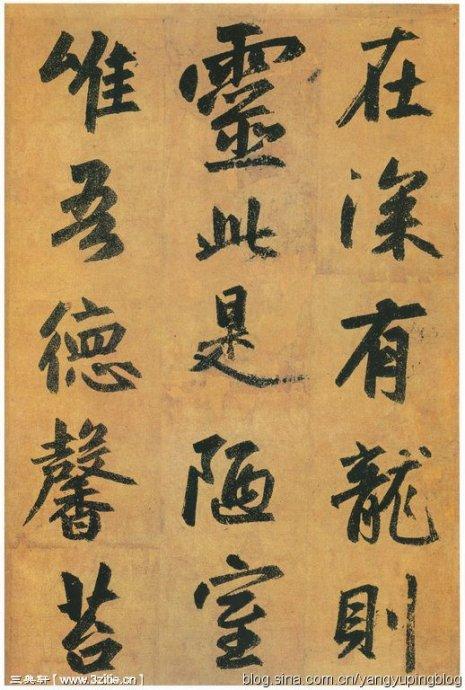 在深有龍則
靈此是陋室
惟吾德馨苔
【www.3zitie.cn】
blog.sina.com.cn/yangyupingblog